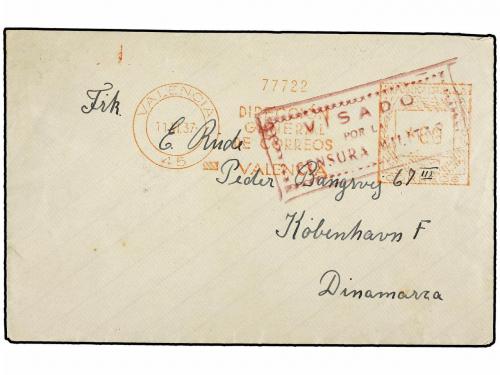 77722
VALENCIA
11.VI.37
45
DIRECCION
GENERAL
DE CORREOS
VALENCIA
VISADO
POR LA
CENSURA MILITAR
Frk.
E. Rude
Peder Bangsvej 67 III
København F
Dinamarca